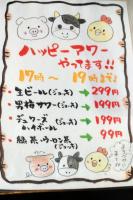 ハッピーアワー
やってます!!
17時〜19時まで♪
・生ビール(ジョッキ)→299円
・男梅サワー(ジョッキ)→199円
・デュワーズハイボール(ジョッキ)→199円
・緑茶・ウーロン茶(ジョッキ)→99円